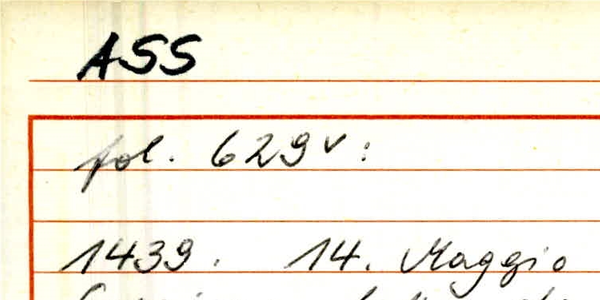 ASS
fol. 629v:
1439. 14. Maggio